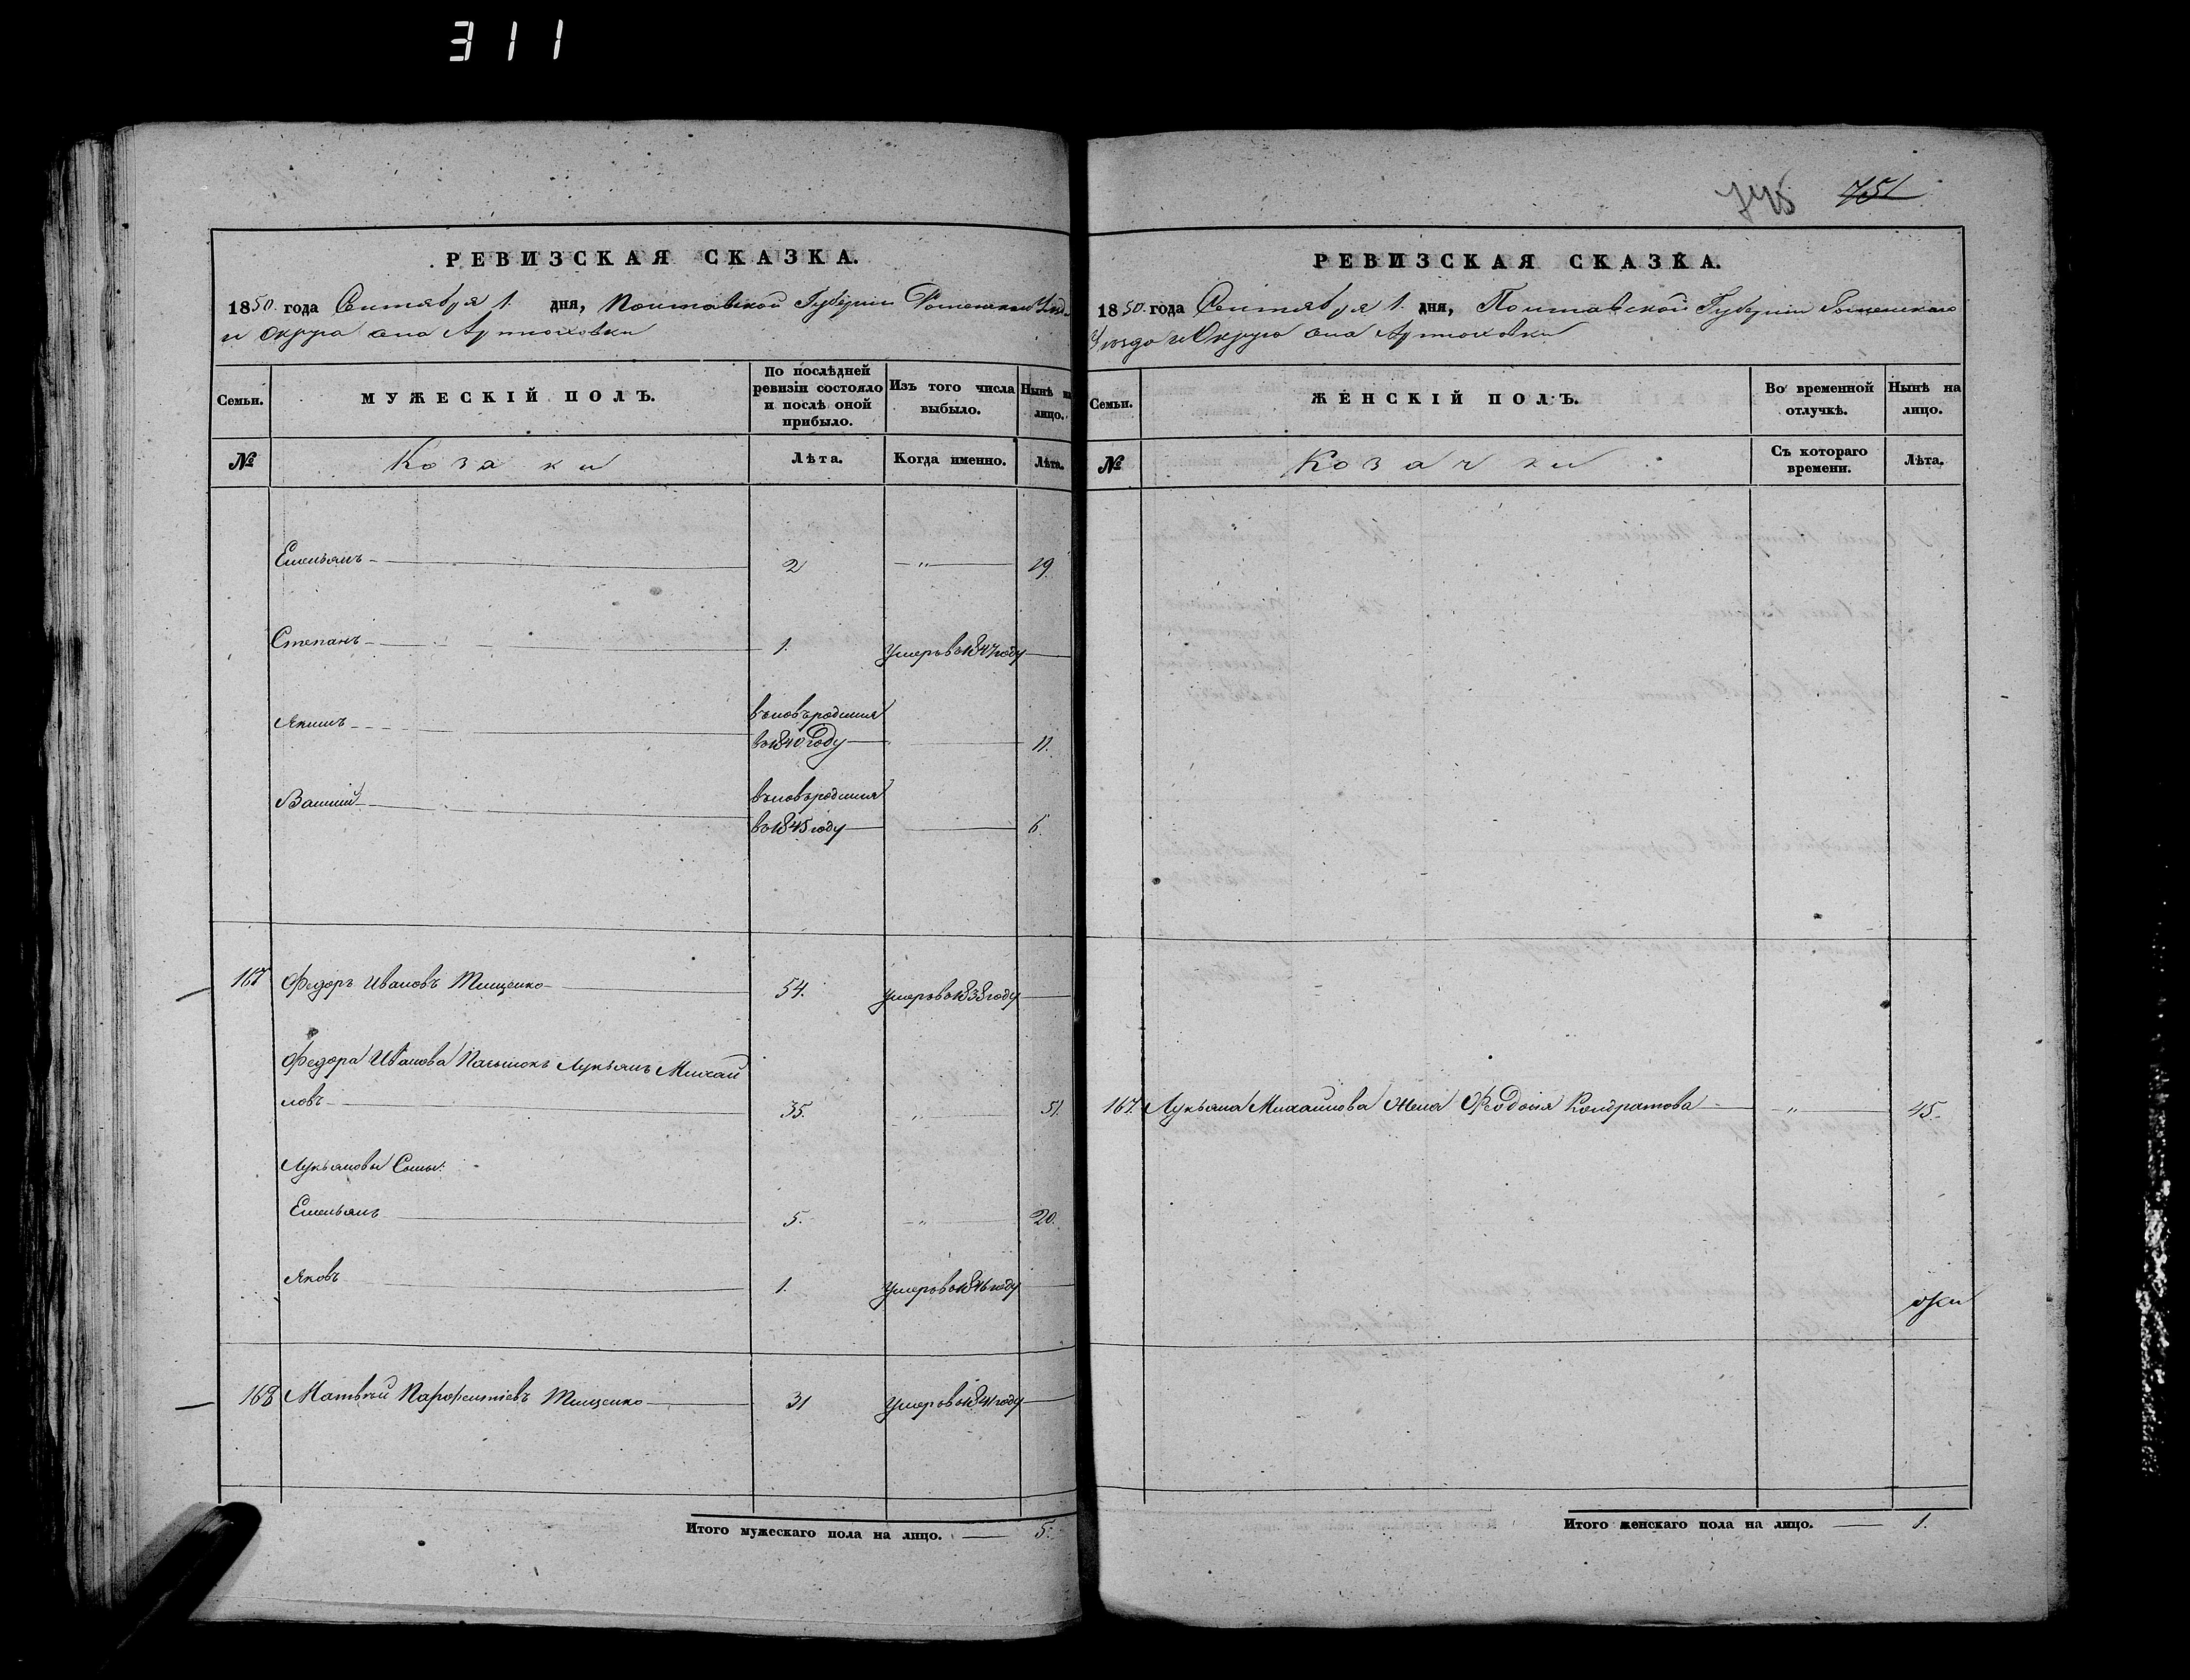 311
745 751
РЕВИЗСКАЯ СКАЗКА.
1850. года Сентября 1. дня, Полтавской Губернии Роменскаго Уезда
и Округа села Артюховки
Семьи.
МУЖЕСКІЙ ПОЛЪ.
По послѣдней ревизіи состояло и послѣ оной прибыло.
Изъ того числа выбыло.
Нынѣ на лицо.
№
Козаки
Лѣта.
Когда именно.
Лѣта.
Емельянъ 2 „ 19.
Степанъ 1. Умеръ въ 1847 году
Якимъ
въновъродился
въ 1840 году 11.
Василій
въновъродился
въ 1845 году 6.
167 Федоръ Ивановъ Тищенко 54. Умеръ въ 1838 году
Федора Иванова Пасынокъ Лукьянъ Михай
ловъ 35. „ 51.
Лукьяновы Сыны:
Емельянъ 5. „ 20.
Яковъ 1. Умеръ въ 1846 году
168 Матвѣй Парфентіевъ Тищенко 31 Умеръ въ 1841 году
Итого мужескаго пола на лицо. 5.
РЕВИЗСКАЯ СКАЗКА.
1850. года Сентября 1. дня, Полтавской Губернии Роменскаго
Уѣзда и Округа села Артюховки
Семьи.
ЖЕНСКІЙ ПОЛЪ.
Во временной отлучкѣ.
Нынѣ на лицо.
№
Козачки
Съ котораго времени.
Лѣта.
167. Лукьяна Михайлова Жена Феодосия Кондратова „ 45.
Итого женскаго пола на лицо. 1.